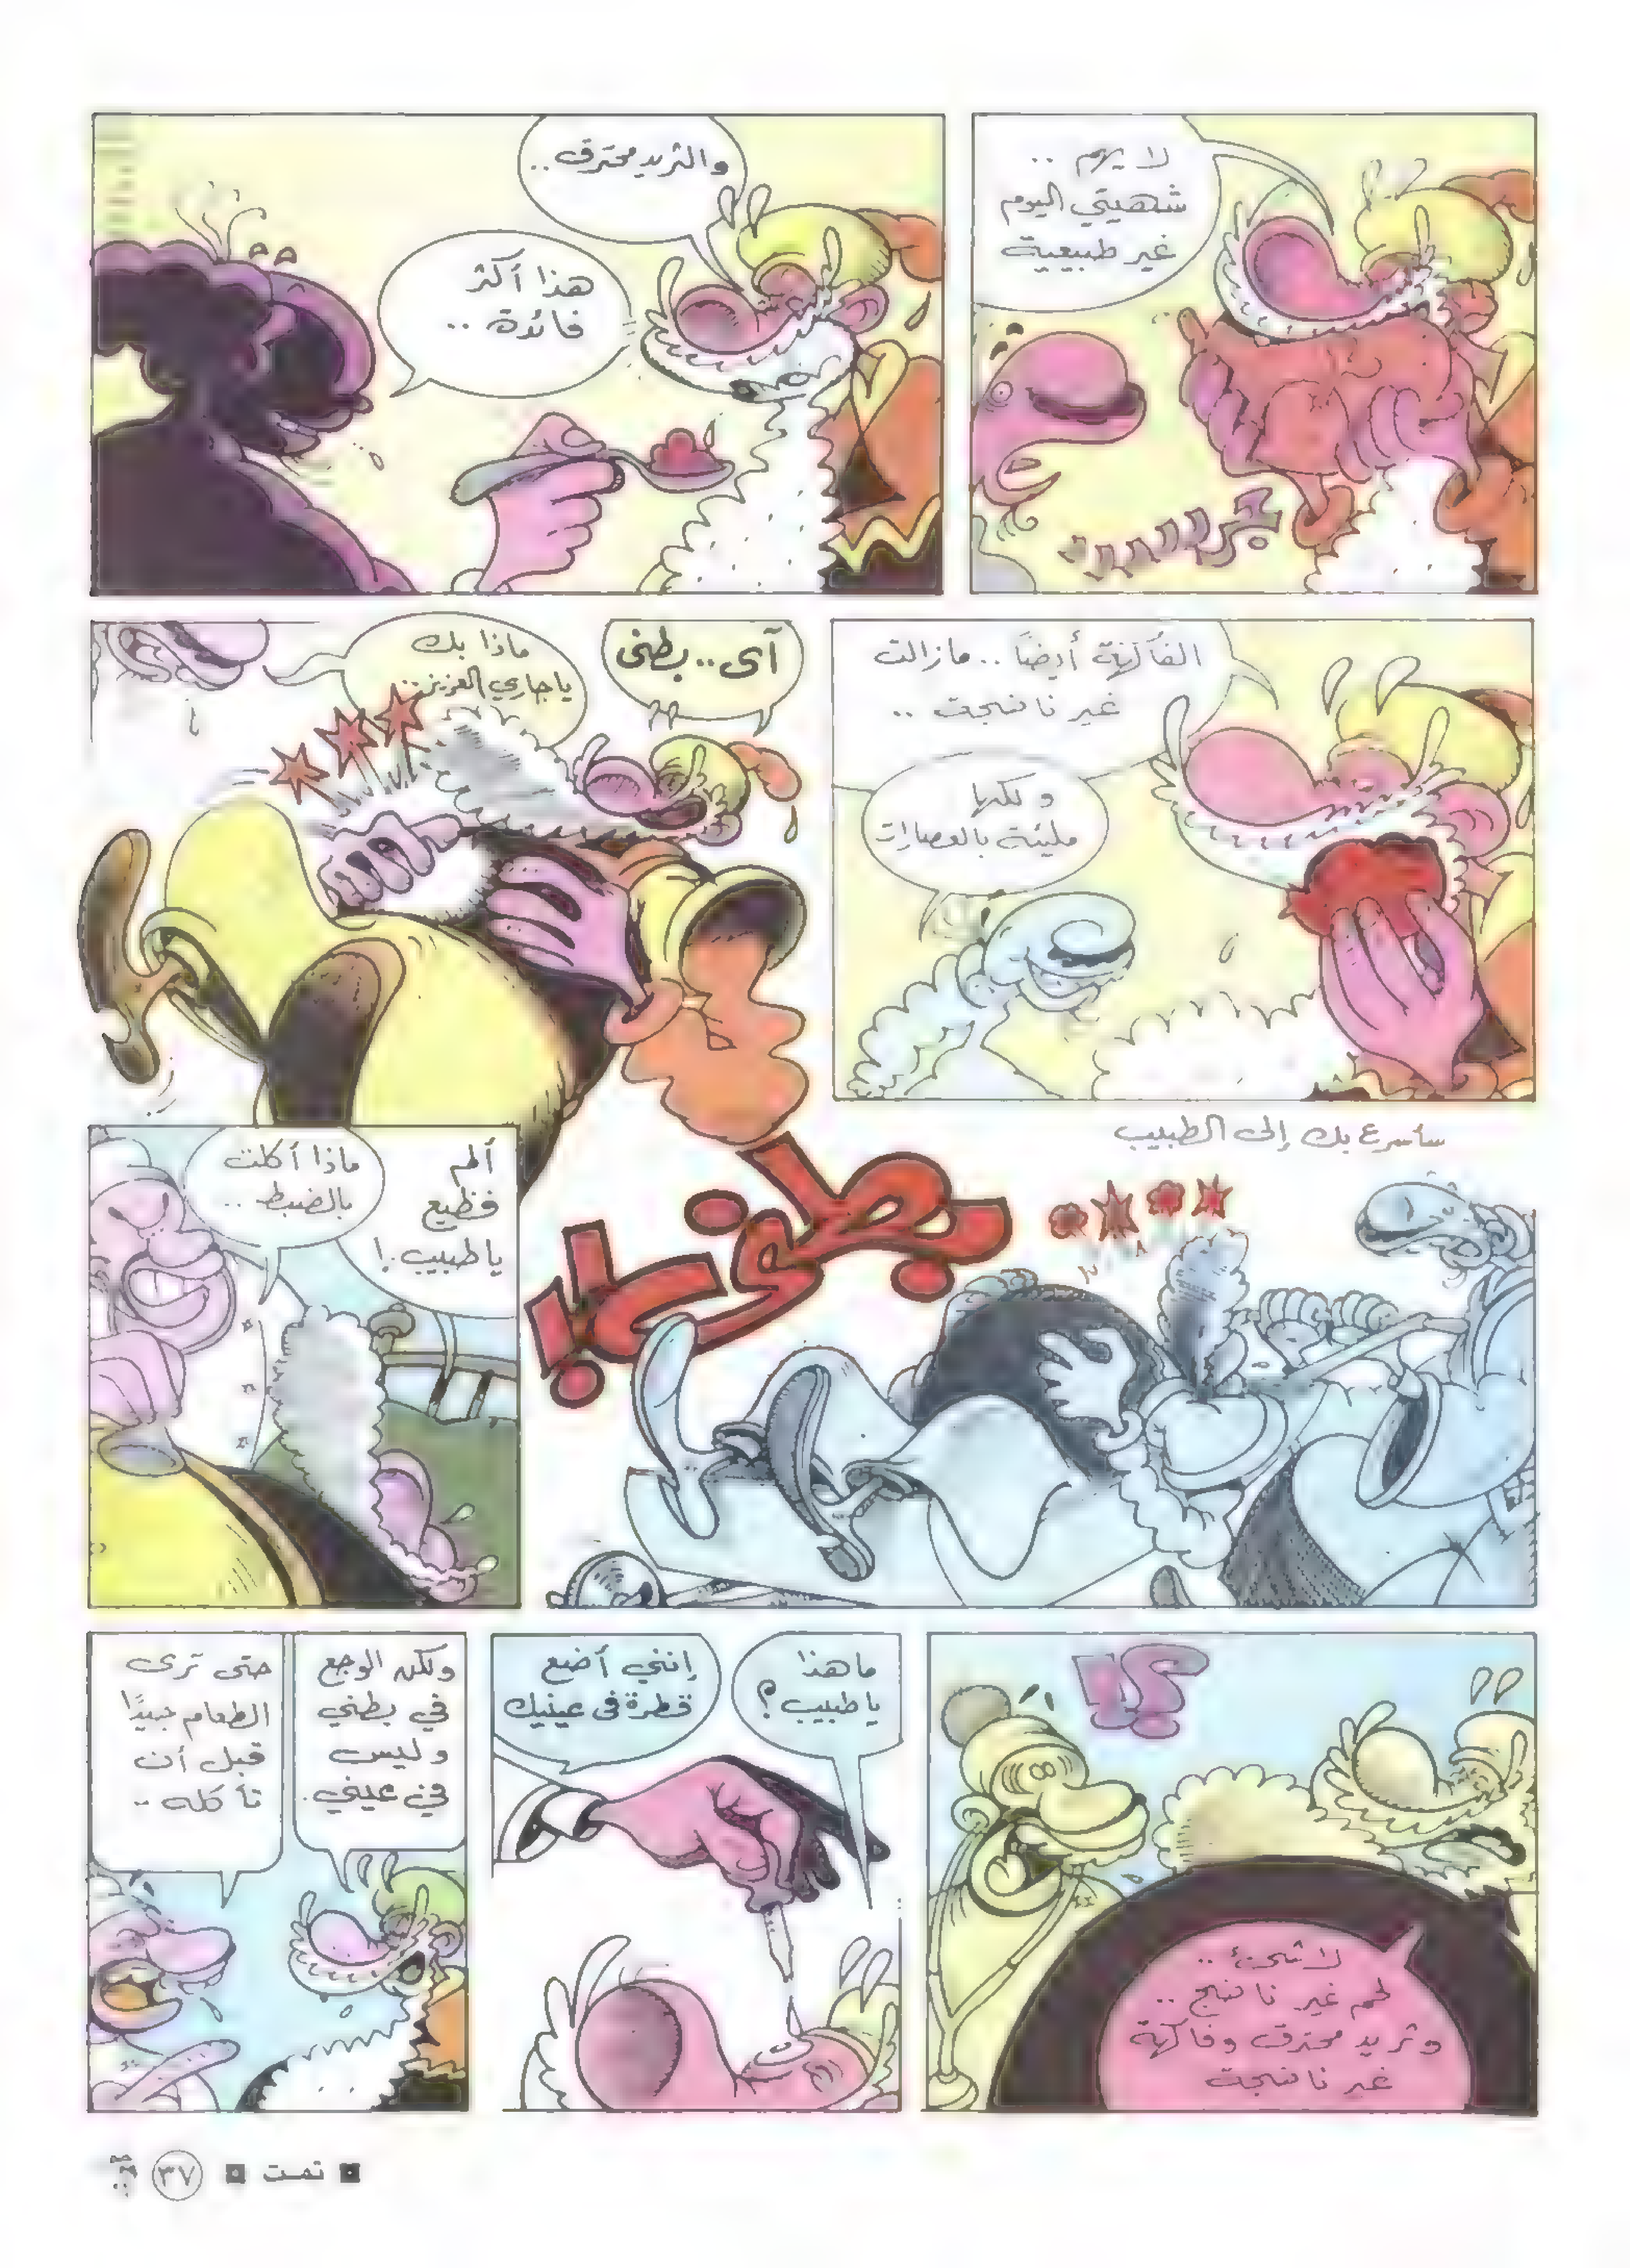 لا يهم ..
شهيتي اليوم
غير طبيعية
والثريد محترق ..
هذا أكثر
فائدة ..
الفاكهة أيضًا .. مازالت
غير ناضجة ..
ولكنها
مليئة بالعصارات
آى .. بطنى
ماذا بك
يا جاري العزيز ..
سأسرع بك إلى الطبيب
ألم
فظيع
يا طبيب .!
ماذا أكلت
بالضبط ..
لا شىء ..
لحم غير ناضج ..
وثريد محترق وفاكهة
غير ناضجة
ما هذا
يا طبيب ؟
إنني أضع
قطرة فى عينيك
ولكن الوجع
في بطني
وليس
في عيني .
حتى ترى
الطعام جيدًا
قبل أن
تأكله ..
تمت
٣٧